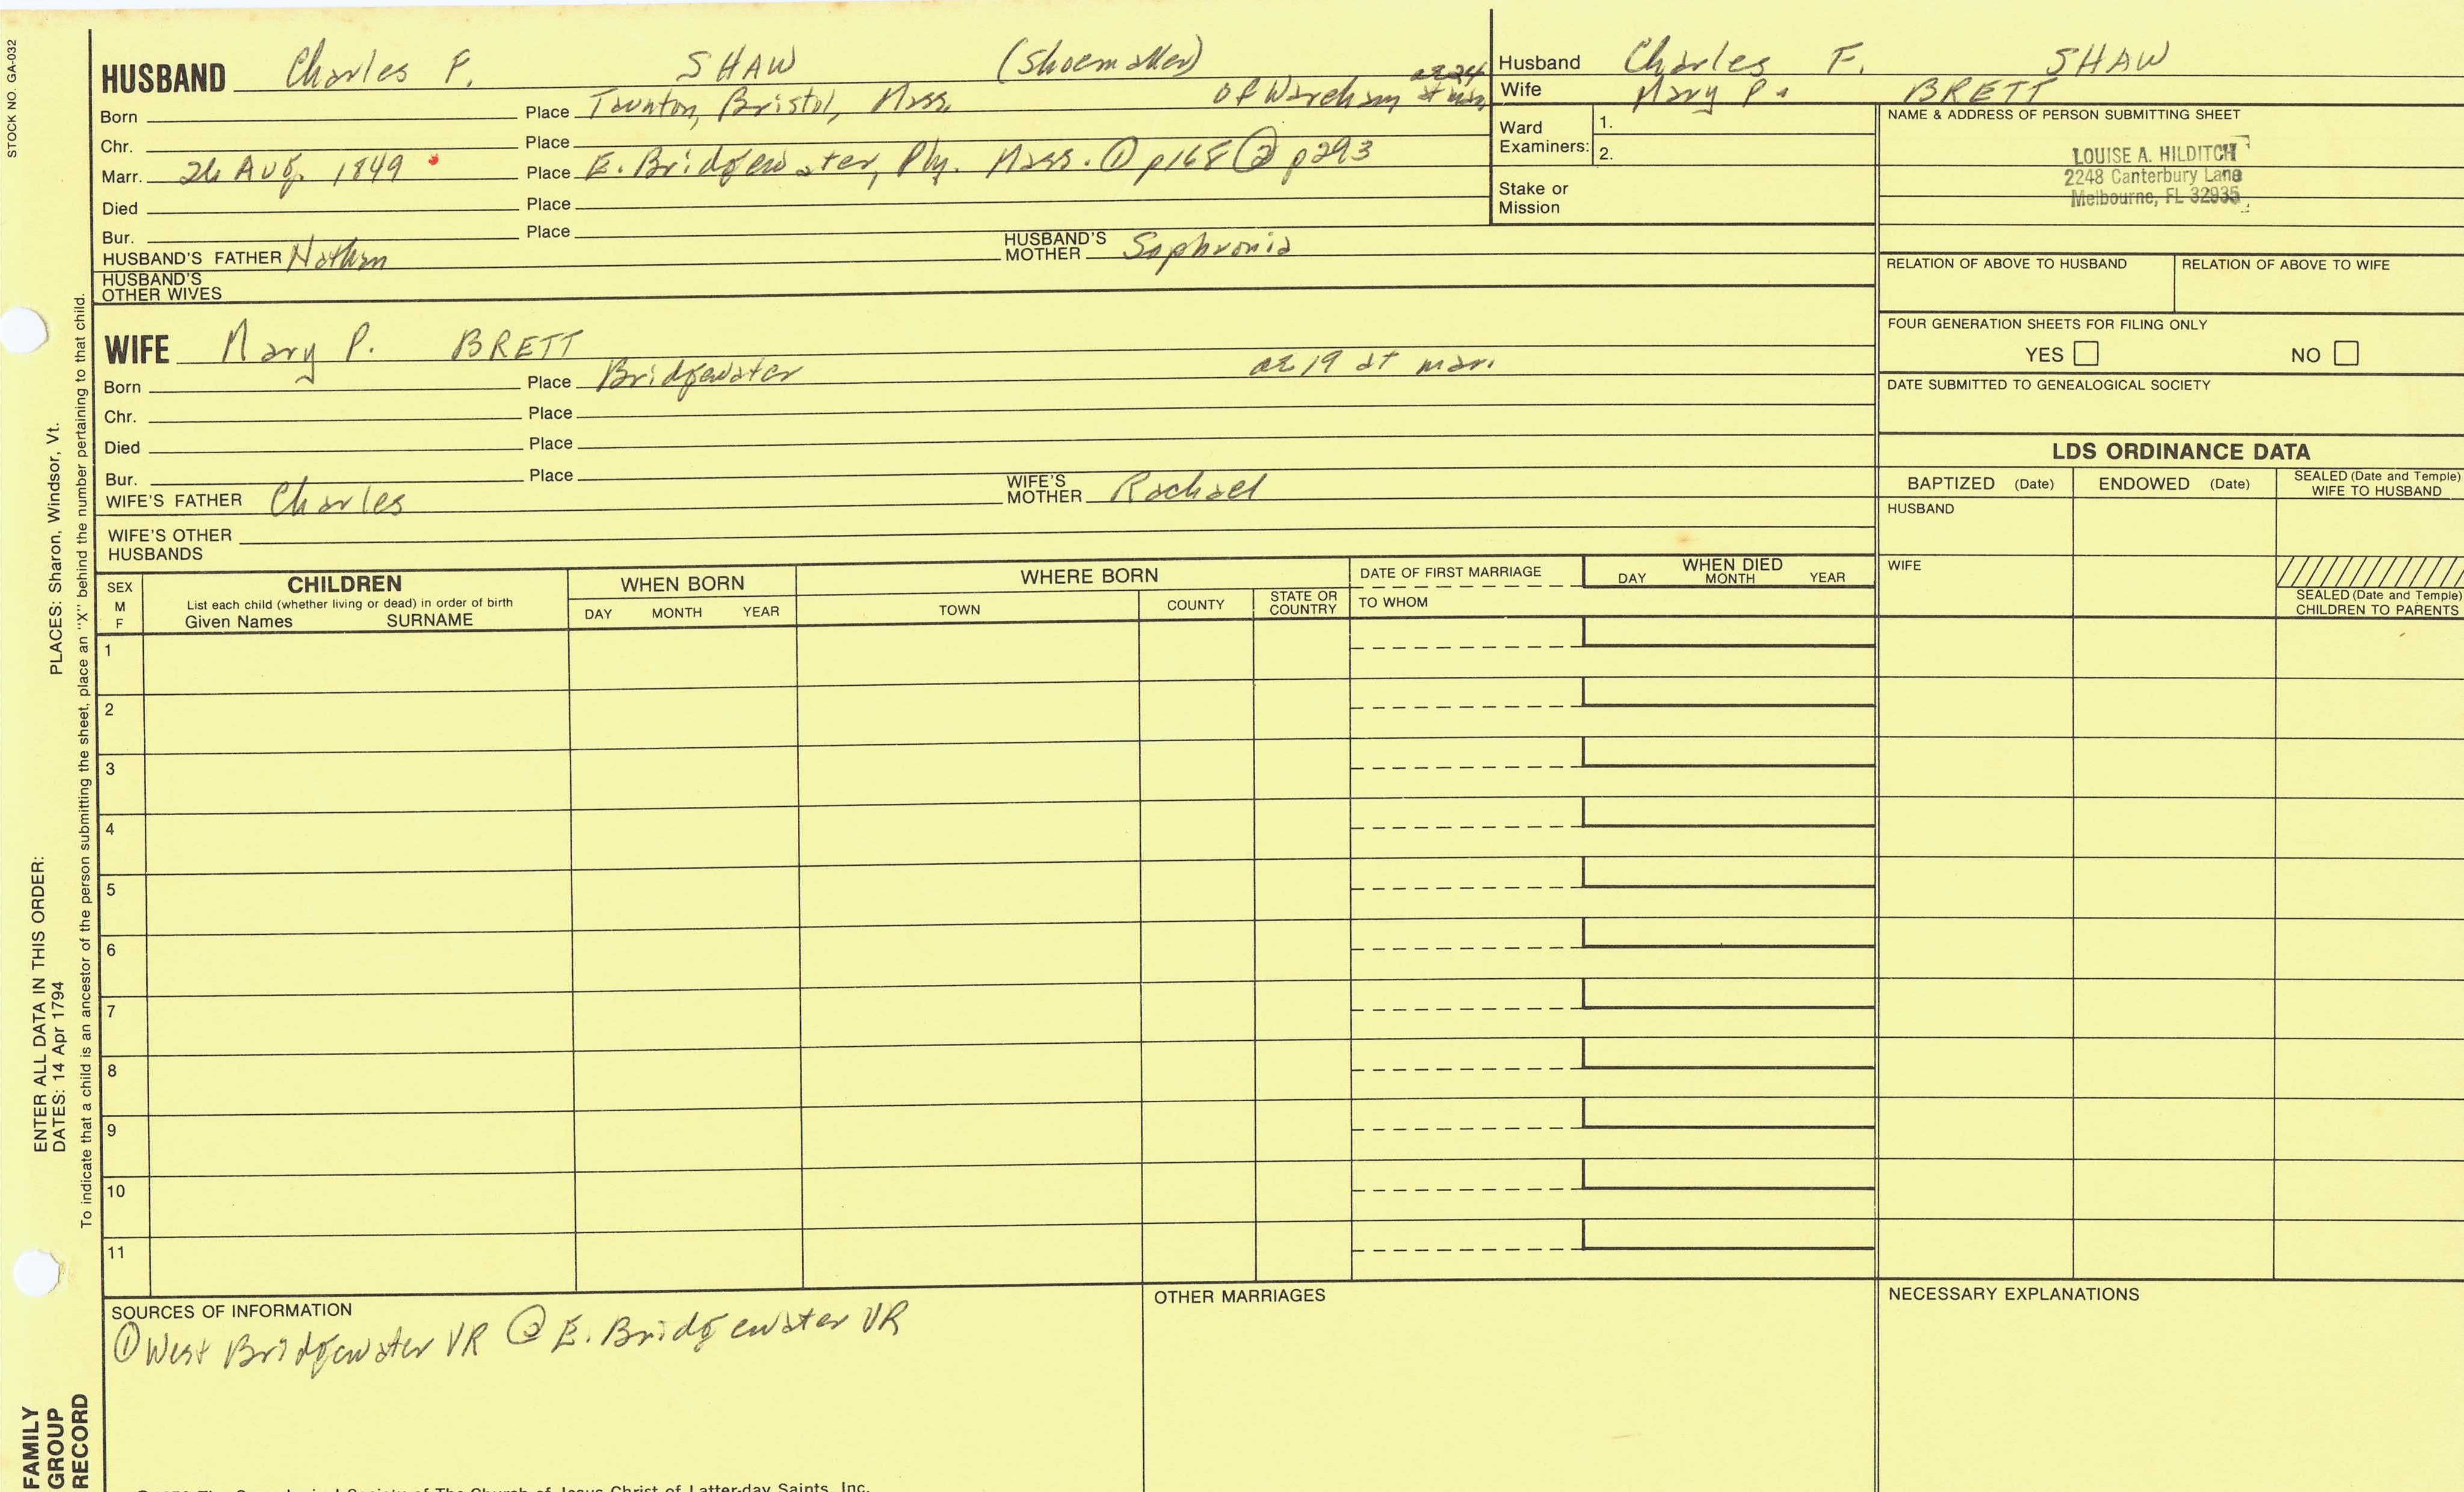 STOCK NO. GA-032
HUSBAND Charles F. SHAW (Shoemaker)
Born Place Taunton, Bristol, Mass. of Wareham ae 24 at mar.
Chr. Place
Marr. 26 Aug. 1849 Place E. Bridgewater, Ply. Mass. ① p168 ② p293
Died Place
Bur. Place
HUSBAND'S FATHER Nathan HUSBAND'S MOTHER Sophronia
HUSBAND'S OTHER WIVES
Husband Charles F. SHAW
Wife Mary P. BRETT
Ward Examiners: 1.
2.
Stake or Mission
NAME & ADDRESS OF PERSON SUBMITTING SHEET
LOUISE A. HILDITCH
2248 Canterbury Lane
Melbourne, FL 32935
RELATION OF ABOVE TO HUSBAND RELATION OF ABOVE TO WIFE
FOUR GENERATION SHEETS FOR FILING ONLY
YES NO
DATE SUBMITTED TO GENEALOGICAL SOCIETY
WIFE Mary P. BRETT
Born Place Bridgewater ae 19 at mar.
Chr. Place
Died Place
Bur. Place
WIFE'S FATHER Charles WIFE'S MOTHER Rachael
WIFE'S OTHER HUSBANDS
LDS ORDINANCE DATA
BAPTIZED (Date) ENDOWED (Date) SEALED (Date and Temple) WIFE TO HUSBAND
HUSBAND
WIFE
SEALED (Date and Temple) CHILDREN TO PARENTS
SEX M F
CHILDREN
List each child (whether living or dead) in order of birth
Given Names SURNAME
WHEN BORN
DAY MONTH YEAR
WHERE BORN
TOWN COUNTY STATE OR COUNTRY
DATE OF FIRST MARRIAGE
TO WHOM
WHEN DIED
DAY MONTH YEAR
1
2
3
4
5
6
7
8
9
10
11
SOURCES OF INFORMATION
① West Bridgewater VR ② E. Bridgewater VR
OTHER MARRIAGES
NECESSARY EXPLANATIONS
The Genealogical Society of The Church of Jesus Christ of Latter-day Saints, Inc.
PLACES: Sharon, Windsor, Vt.
To indicate that a child is an ancestor of the person submitting the sheet, place an "X" behind the number pertaining to that child.
ENTER ALL DATA IN THIS ORDER:
DATES: 14 Apr 1794
FAMILY
GROUP
RECORD